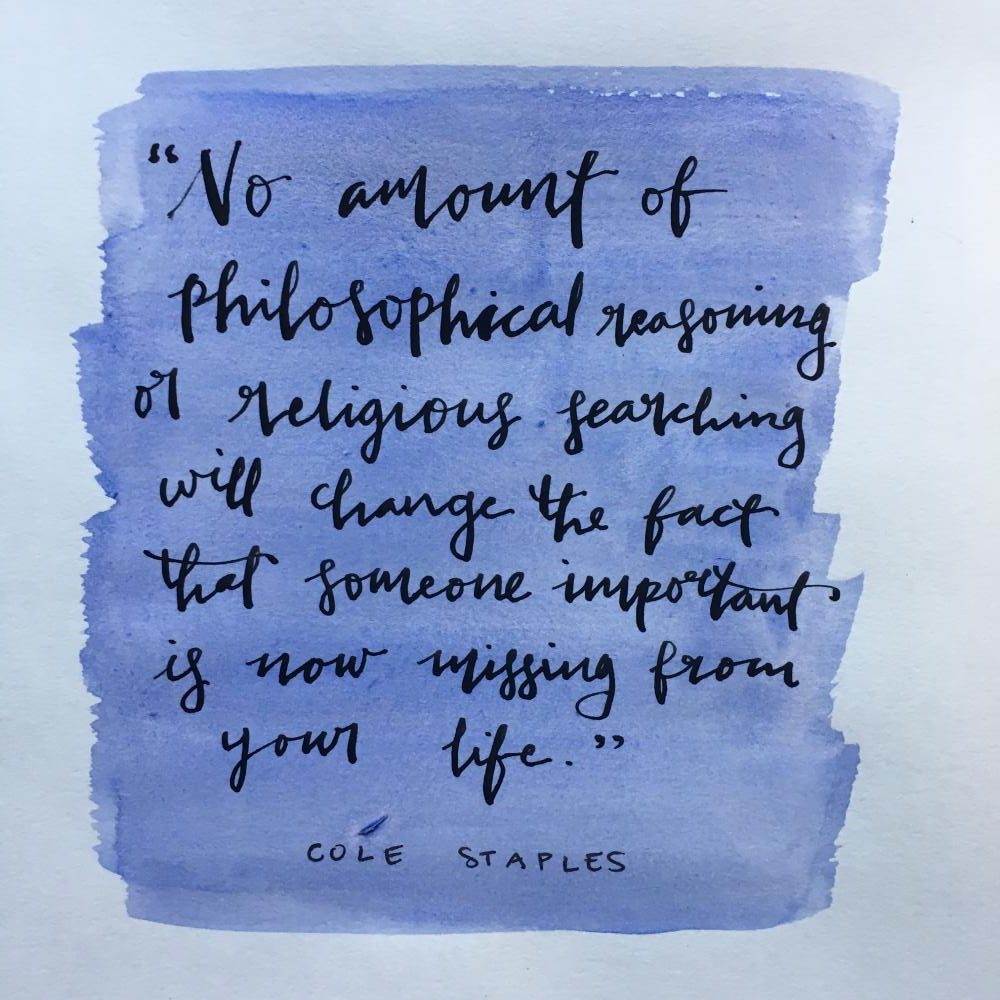 “No amount of
philosophical reasoning
or religious searching
will change the fact
that someone important
is now missing from
your life.”
COLE STAPLES